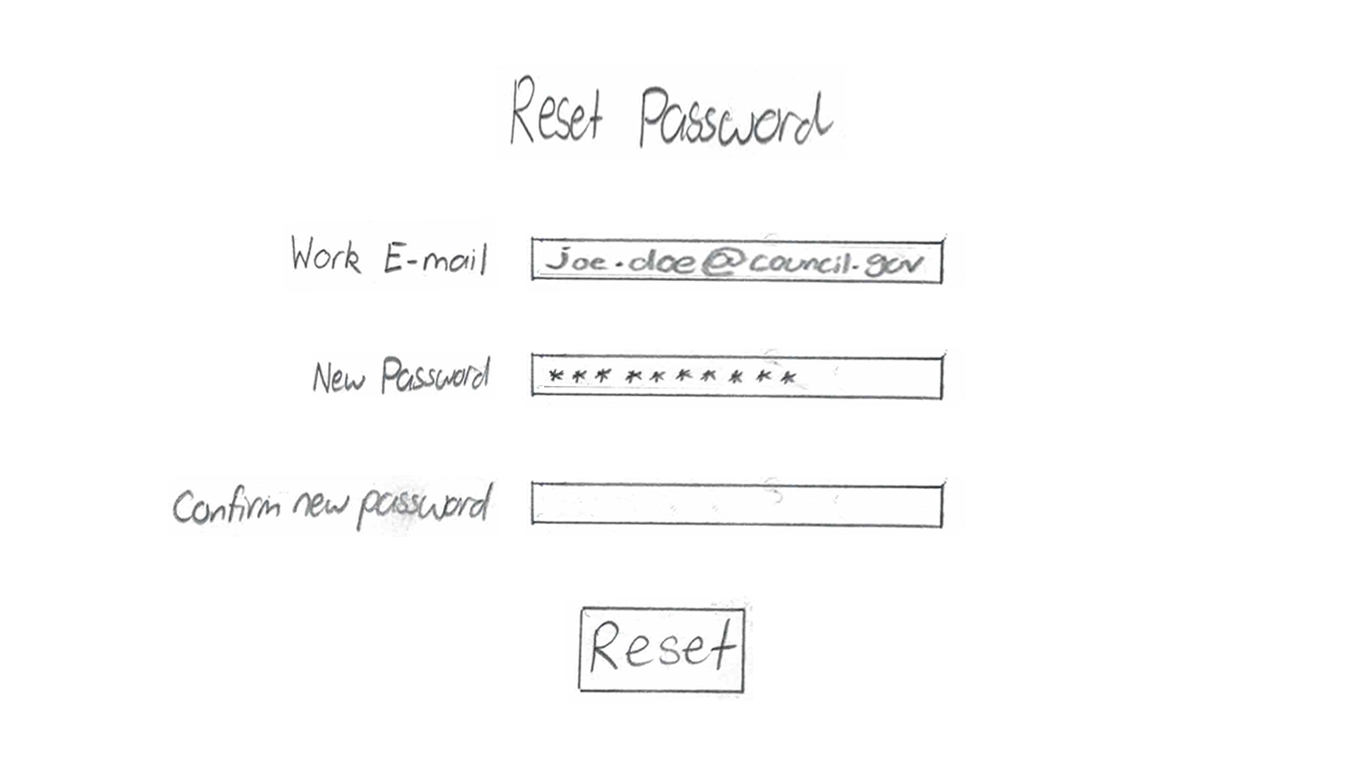 Reset Password
Work E-mail joe.doe@council.gov
New Password **********
Confirm new password
Reset